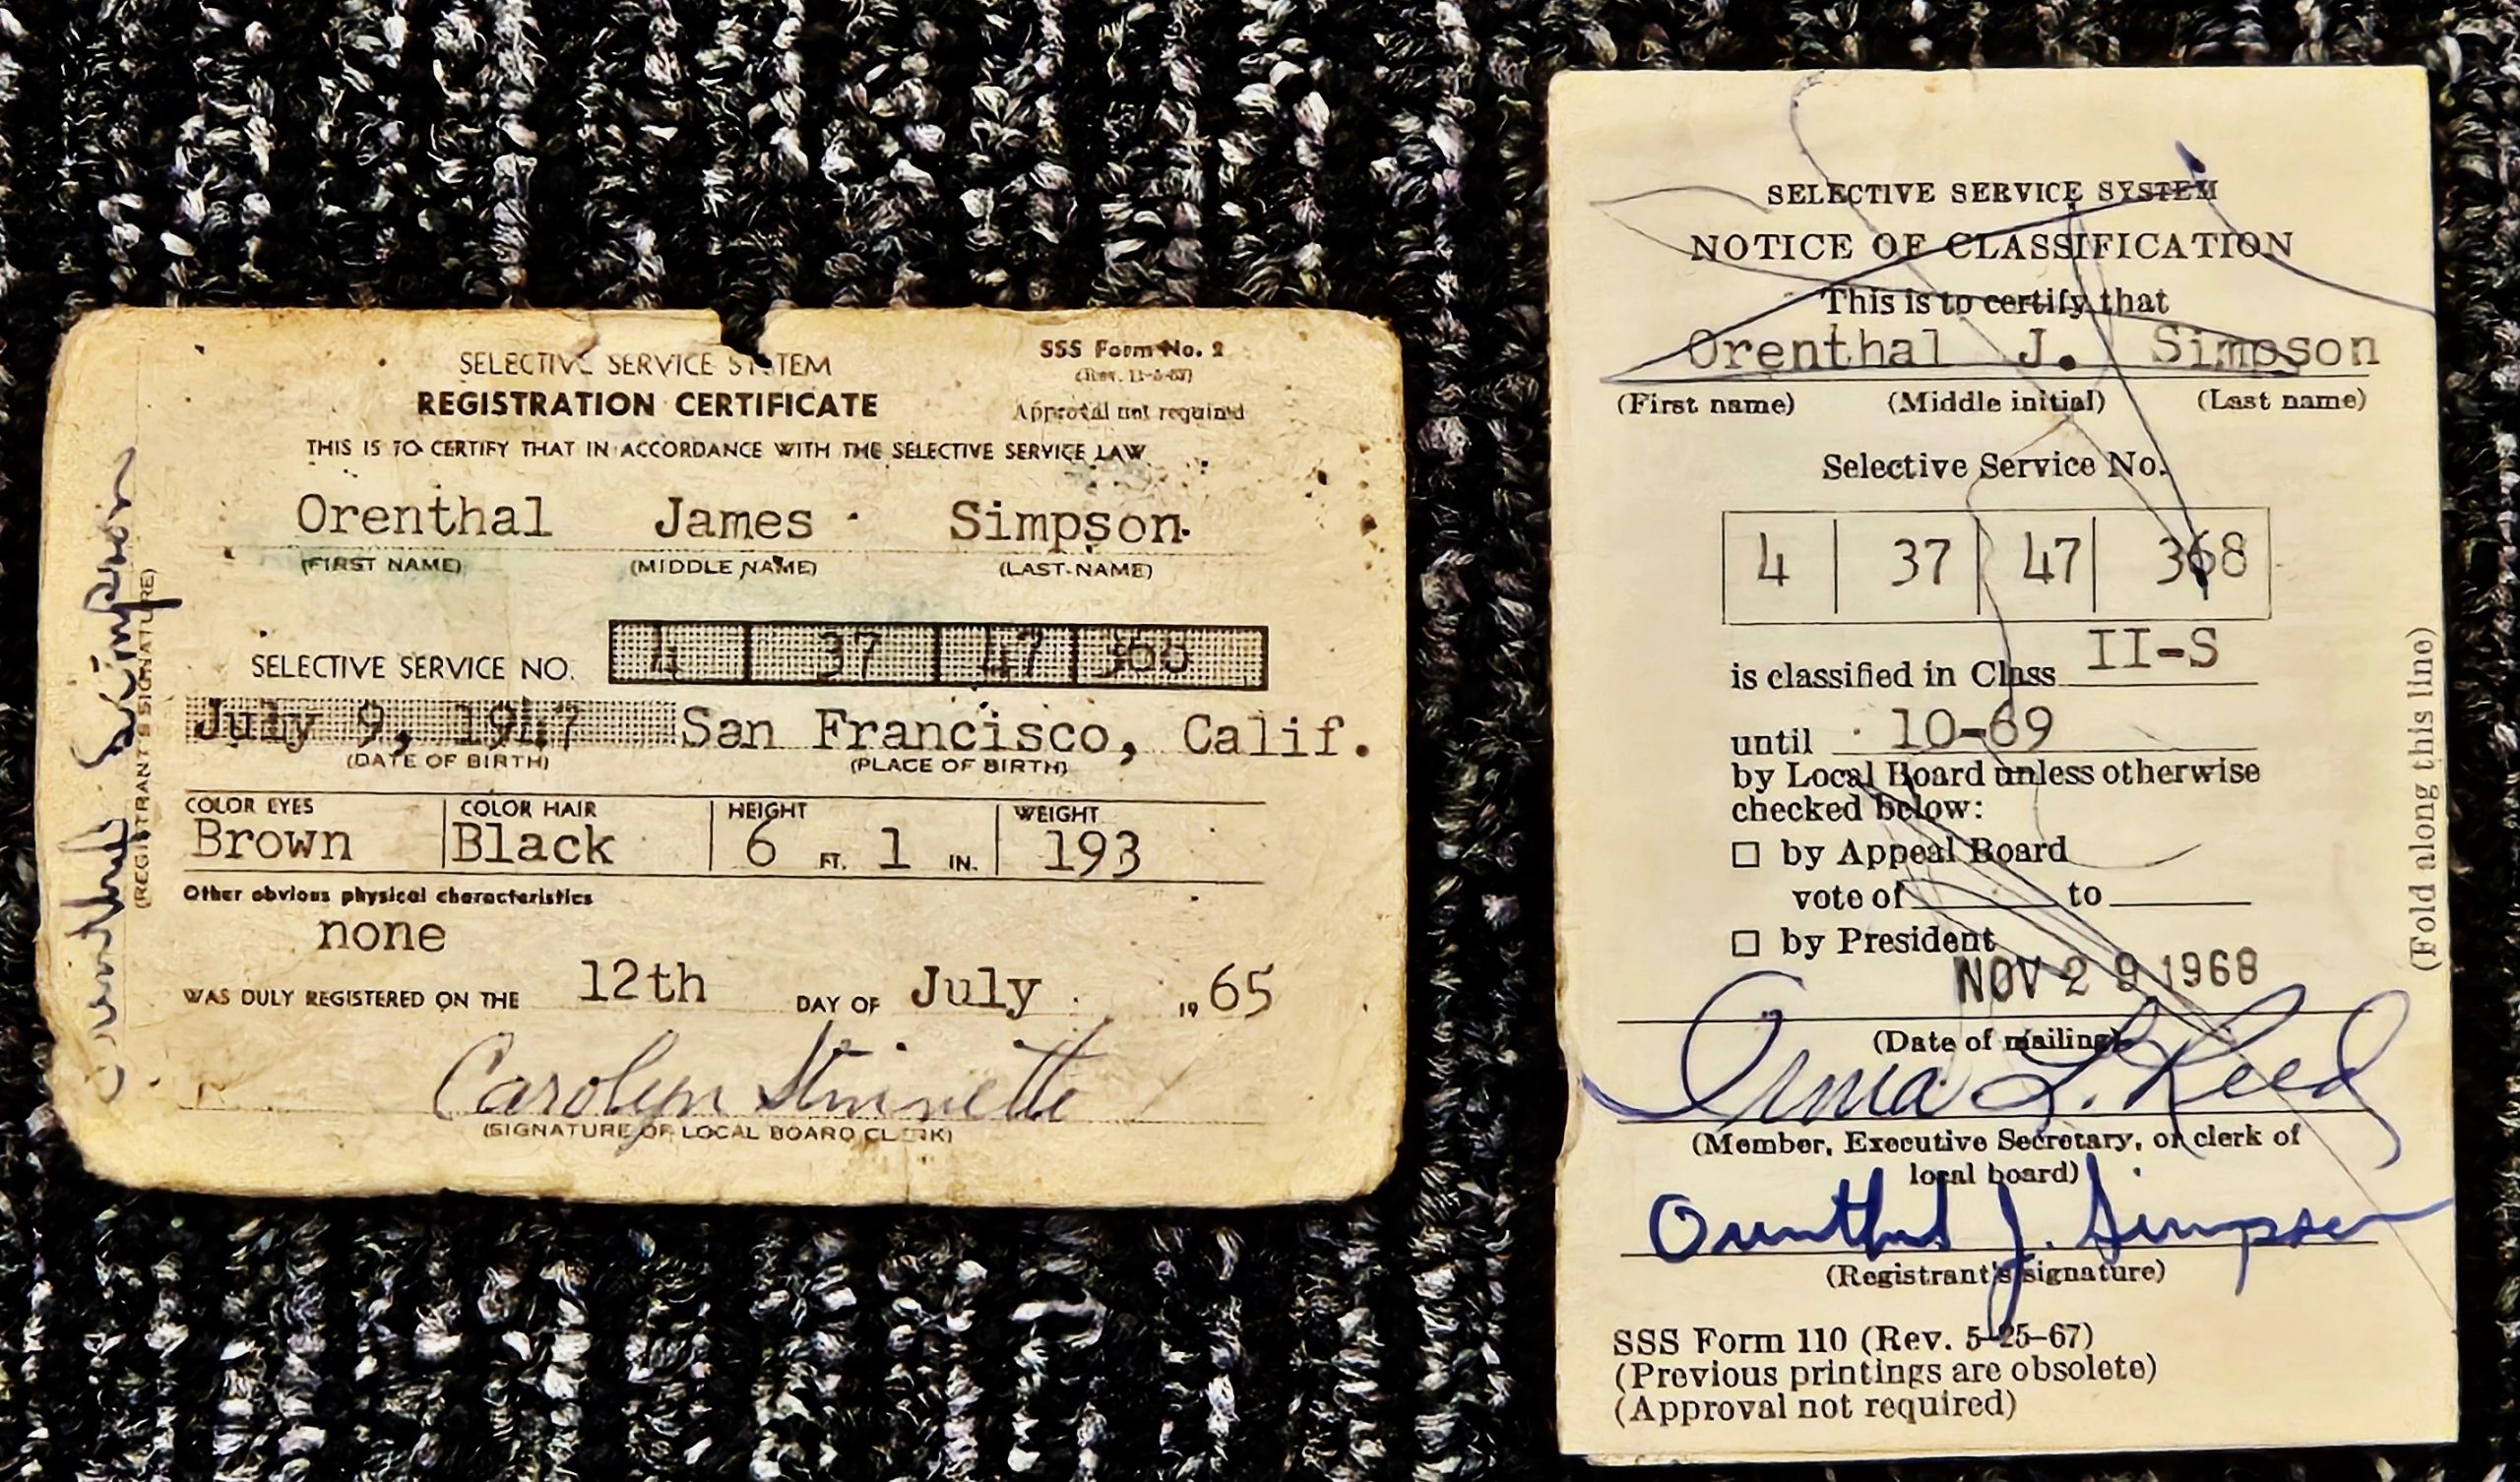 SELECTIVE SERVICE SYSTEM
REGISTRATION CERTIFICATE
SSS Form No. 2
Approval not required
THIS IS TO CERTIFY THAT IN ACCORDANCE WITH THE SELECTIVE SERVICE LAW
Orenthal James Simpson
(FIRST NAME) (MIDDLE NAME) (LAST NAME)
SELECTIVE SERVICE NO. 4 37 47
July 9, 1947 San Francisco, Calif.
(DATE OF BIRTH) (PLACE OF BIRTH)
COLOR EYES COLOR HAIR HEIGHT WEIGHT
Brown Black 6 FT. 1 IN. 193
Other obvious physical characteristics
none
WAS DULY REGISTERED ON THE 12th DAY OF July 19 65
Carolyn
(SIGNATURE OF LOCAL BOARD CLERK)
Orenthal Simpson
(REGISTRANT'S SIGNATURE)
SELECTIVE SERVICE SYSTEM
NOTICE OF CLASSIFICATION
This is to certify that
Orenthal J. Simpson
(First name) (Middle initial) (Last name)
Selective Service No.
4 37 47 368
is classified in Class II-S
until 10-69
by Local Board unless otherwise
checked below:
by Appeal Board
vote of to
by President
NOV 29 1968
(Date of mailing)
Irma L. Reed
(Member, Executive Secretary, or clerk of
local board)
Orenthal J. Simpson
(Registrant's signature)
SSS Form 110 (Rev. 5-25-67)
(Previous printings are obsolete)
(Approval not required)
(Fold along this line)